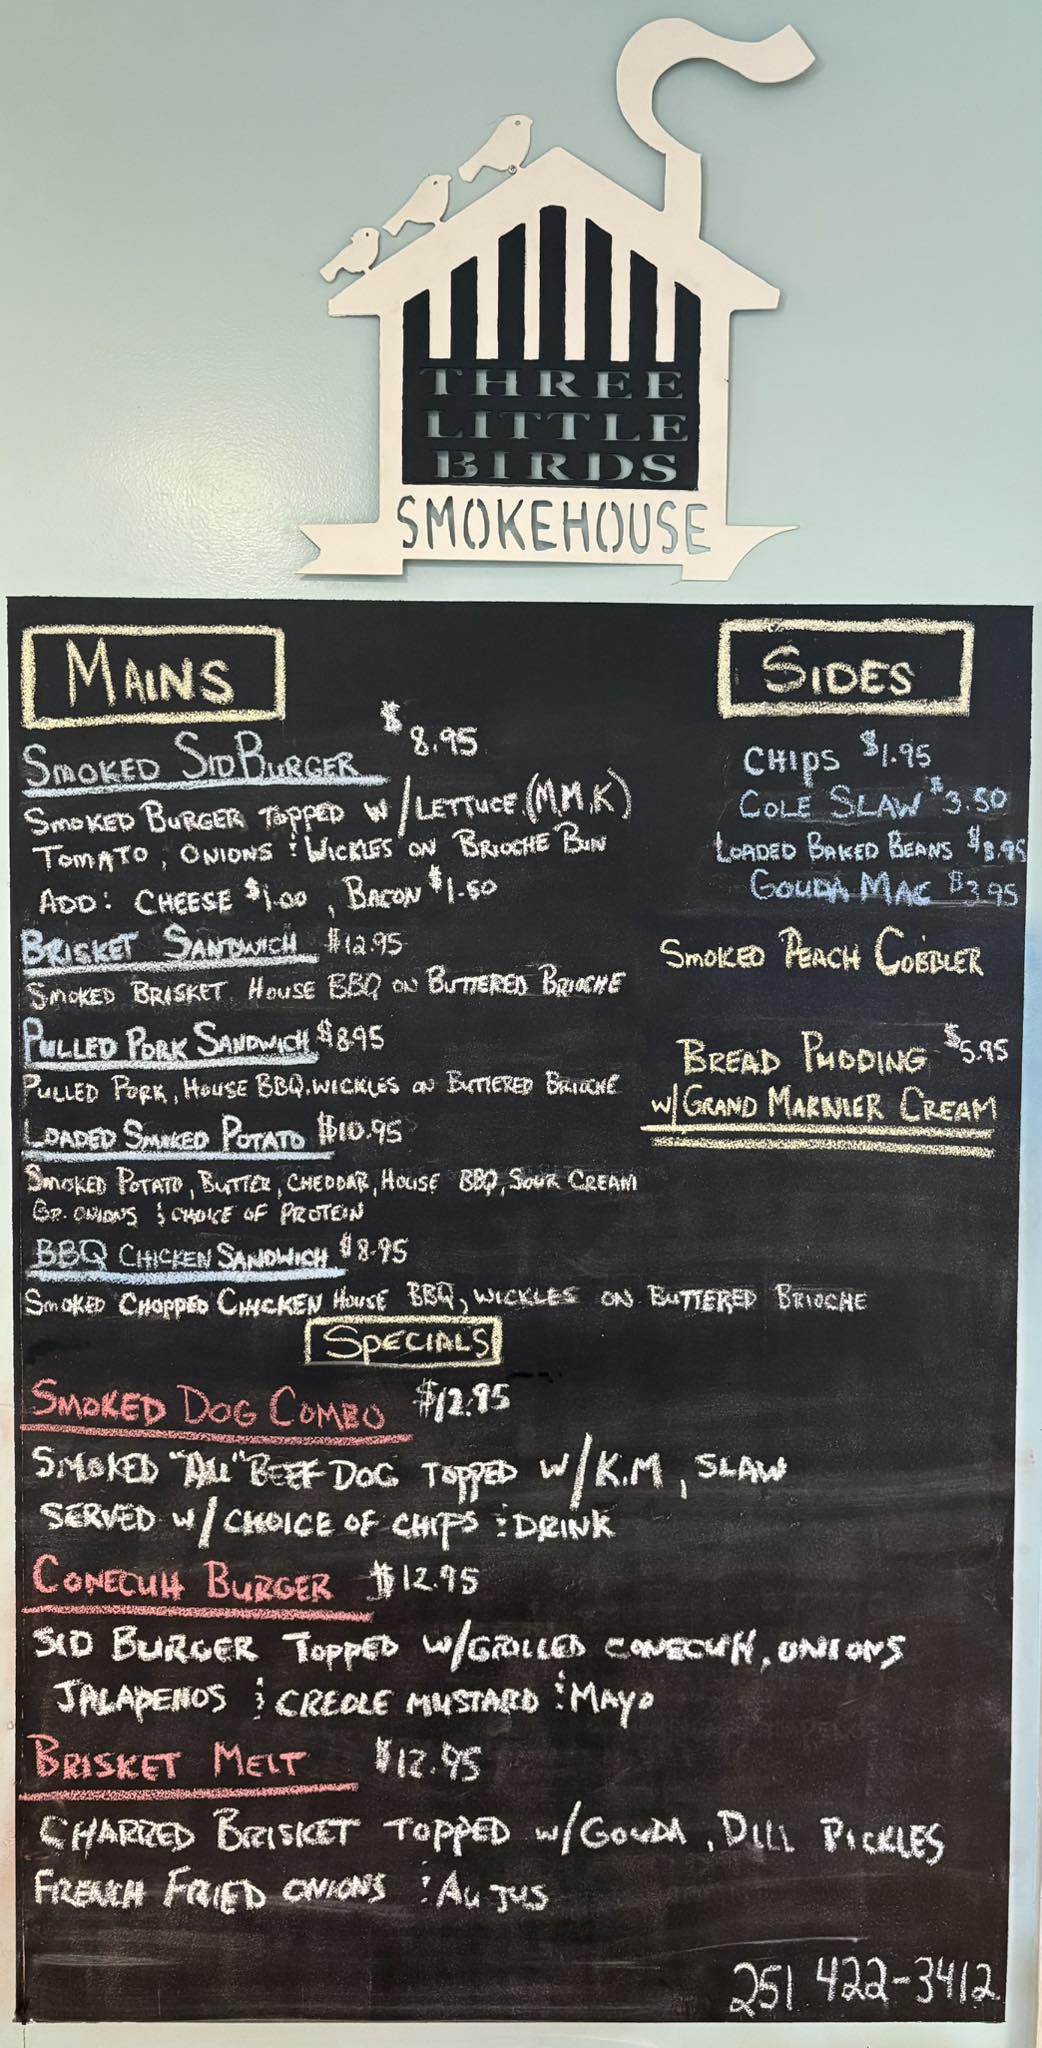 THREE
LITTLE
BIRDS
SMOKEHOUSE
MAINS
SMOKED SIDBURGER $8.95
SMOKED BURGER TOPPED W/LETTUCE (M,M,K)
TOMATO, ONIONS & WICKLES ON BRIOCHE BUN
ADD: CHEESE $1.00, BACON $1.50
BRISKET SANDWICH $12.95
SMOKED BRISKET, HOUSE BBQ ON BUTTERED BRIOCHE
PULLED PORK SANDWICH $8.95
PULLED PORK, HOUSE BBQ, WICKLES ON BUTTERED BRIOCHE
LOADED SMOKED POTATO $10.95
SMOKED POTATO, BUTTER, CHEDDAR, HOUSE BBQ, SOUR CREAM
GR. ONIONS & CHOICE OF PROTEIN
BBQ CHICKEN SANDWICH $8.95
SMOKED CHOPPED CHICKEN HOUSE BBQ, WICKLES ON BUTTERED BRIOCHE
SIDES
CHIPS $1.95
COLE SLAW $3.50
LOADED BAKED BEANS $8.95
GOUDA MAC $3.95
SMOKED PEACH COBBLER
BREAD PUDDING $5.95
W/GRAND MARNIER CREAM
SPECIALS
SMOKED DOG COMBO $12.95
SMOKED "ALL" BEEF DOG TOPPED W/K.M, SLAW
SERVED W/CHOICE OF CHIPS & DRINK
CONECUH BURGER $12.95
SID BURGER TOPPED W/GRILLED CONECUH, ONIONS
JALAPENOS & CREOLE MUSTARD & MAYO
BRISKET MELT $12.95
CHARRED BRISKET TOPPED W/GOUDA, DILL PICKLES
FRENCH FRIED ONIONS & AU JUS
251 422-3412